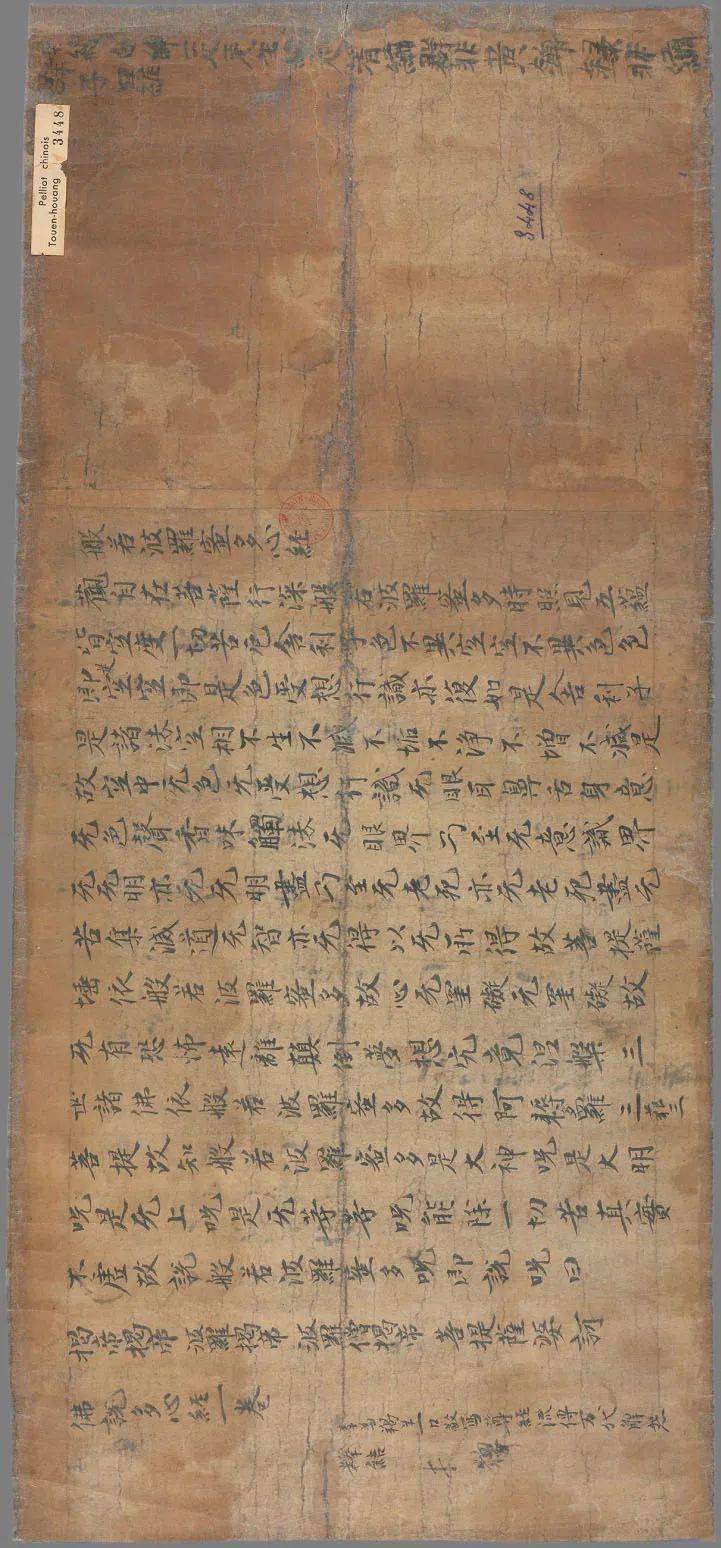 Pelliot chinois
Touen-houang 3448
3448
般若波羅蜜多心経
觀自在菩薩行深般若波羅蜜多時照見五蘊
皆空度一切苦厄舍利子色不異空空不異色色
即是空空即是色受想行識亦復如是舍利子
是諸法空相不生不滅不垢不淨不增不減是
故空中无色无受想行識无眼耳鼻舌身意
无色聲香味觸法无眼界乃至无意識界
无无明亦无无明盡乃至无老死亦无老死盡无
苦集滅道无智亦无得以无所得故菩提薩
埵依般若波羅蜜多故心无罣礙无罣礙故
无有恐怖遠離顛倒夢想究竟涅槃三
世諸佛依般若波羅蜜多故得阿耨多羅三藐三
菩提故知般若波羅蜜多是大神呪是大明
呪是无上呪是无等等呪能除一切苦真實
不虛故說般若波羅蜜多呪即說呪曰
揭帝揭帝 波羅揭帝 波羅僧揭帝 菩提薩婆訶
佛說多心経一卷
敬寫尊経流傳万代